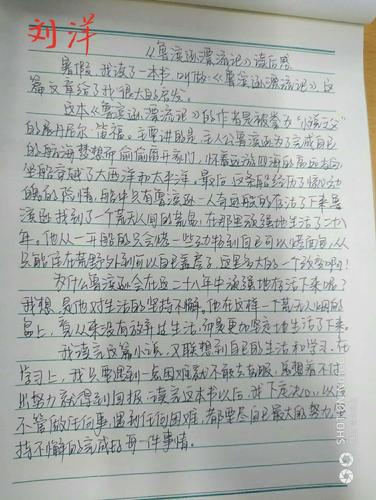 刘洋
《鲁滨逊漂流记》读后感
暑假,我读了一本书,叫做《鲁滨逊漂流记》这
篇文章给了我很大的启发。
这本《鲁滨逊漂流记》的作者是被誉为"小说之父"
的丹尼尔·笛福。主要讲的是:主人公鲁滨逊为了完成自己
的航海梦想而偷偷离开家门,怀着远游四海的高远志向,
坐船穿越了大西洋和太平洋。最后这条船经历了惊心动
魄的险情,船中只有鲁滨逊一人奇迹般的存活了下来鲁
滨逊找到了一个荒无人间的荒岛,在那里顽强地生活了二十八
年。他从一开始的只会烤一些动物到自己可以烤面包,从
只能住在荒野外到可以自己盖房子,这是多大的一个改变啊!
为什么鲁滨逊会在这二十八年中顽强地存活下来呢?
我想,是他对生活的坚持不懈。他在这样一个荒无人烟的
岛上,看从来没有放弃过生活,而是更加坚定地生活了下来。
我读完这篇小说,又联想到自己的生活和学习,在
学习上,我只要遇到一点困难就不敢去克服,总想着不付
出努力就得到回报,读完这本书以后,我下定决心,以后
不管做任何事,遇到任何困难,都要尽自己最大的努力坚
持不懈的完成好每一件事情。
SHOT ON